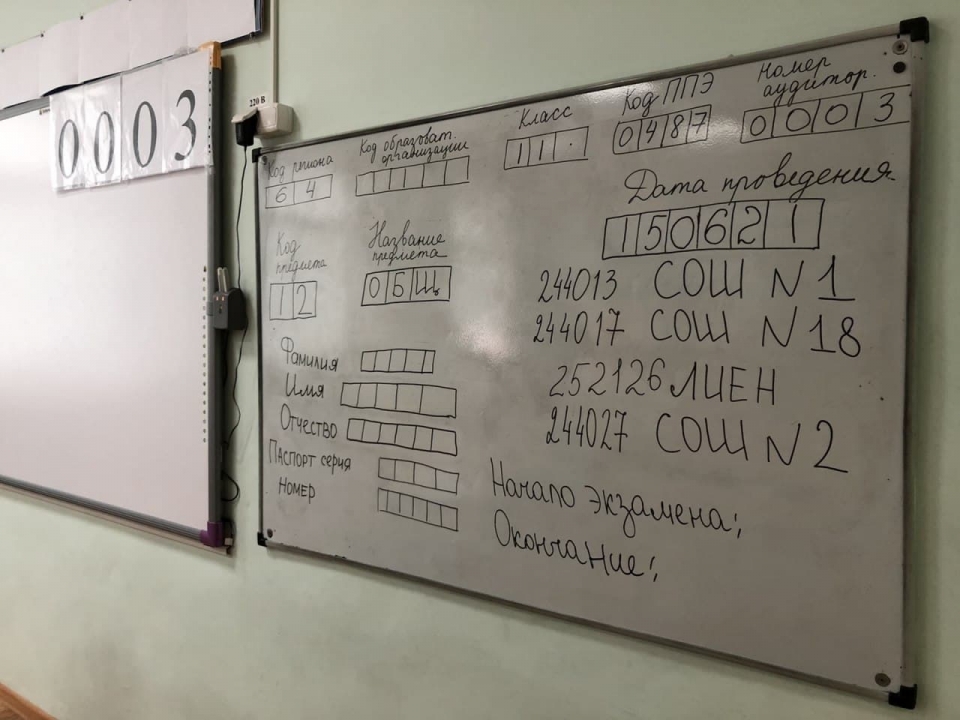 0003
220 В
Код региона
64
Код образоват.
организации
Класс
11.
Код ППЭ
0487
Номер
аудитор.
0003
Дата проведения
150621
Код
предмета
12
Название
предмета
ОБЩ
244013 СОШ N 1
244017 СОШ N 18
252126 ЛИЕН
244027 СОШ N 2
Фамилия
Имя
Отчество
Паспорт серия
Номер
Начало экзамена:
Окончание: